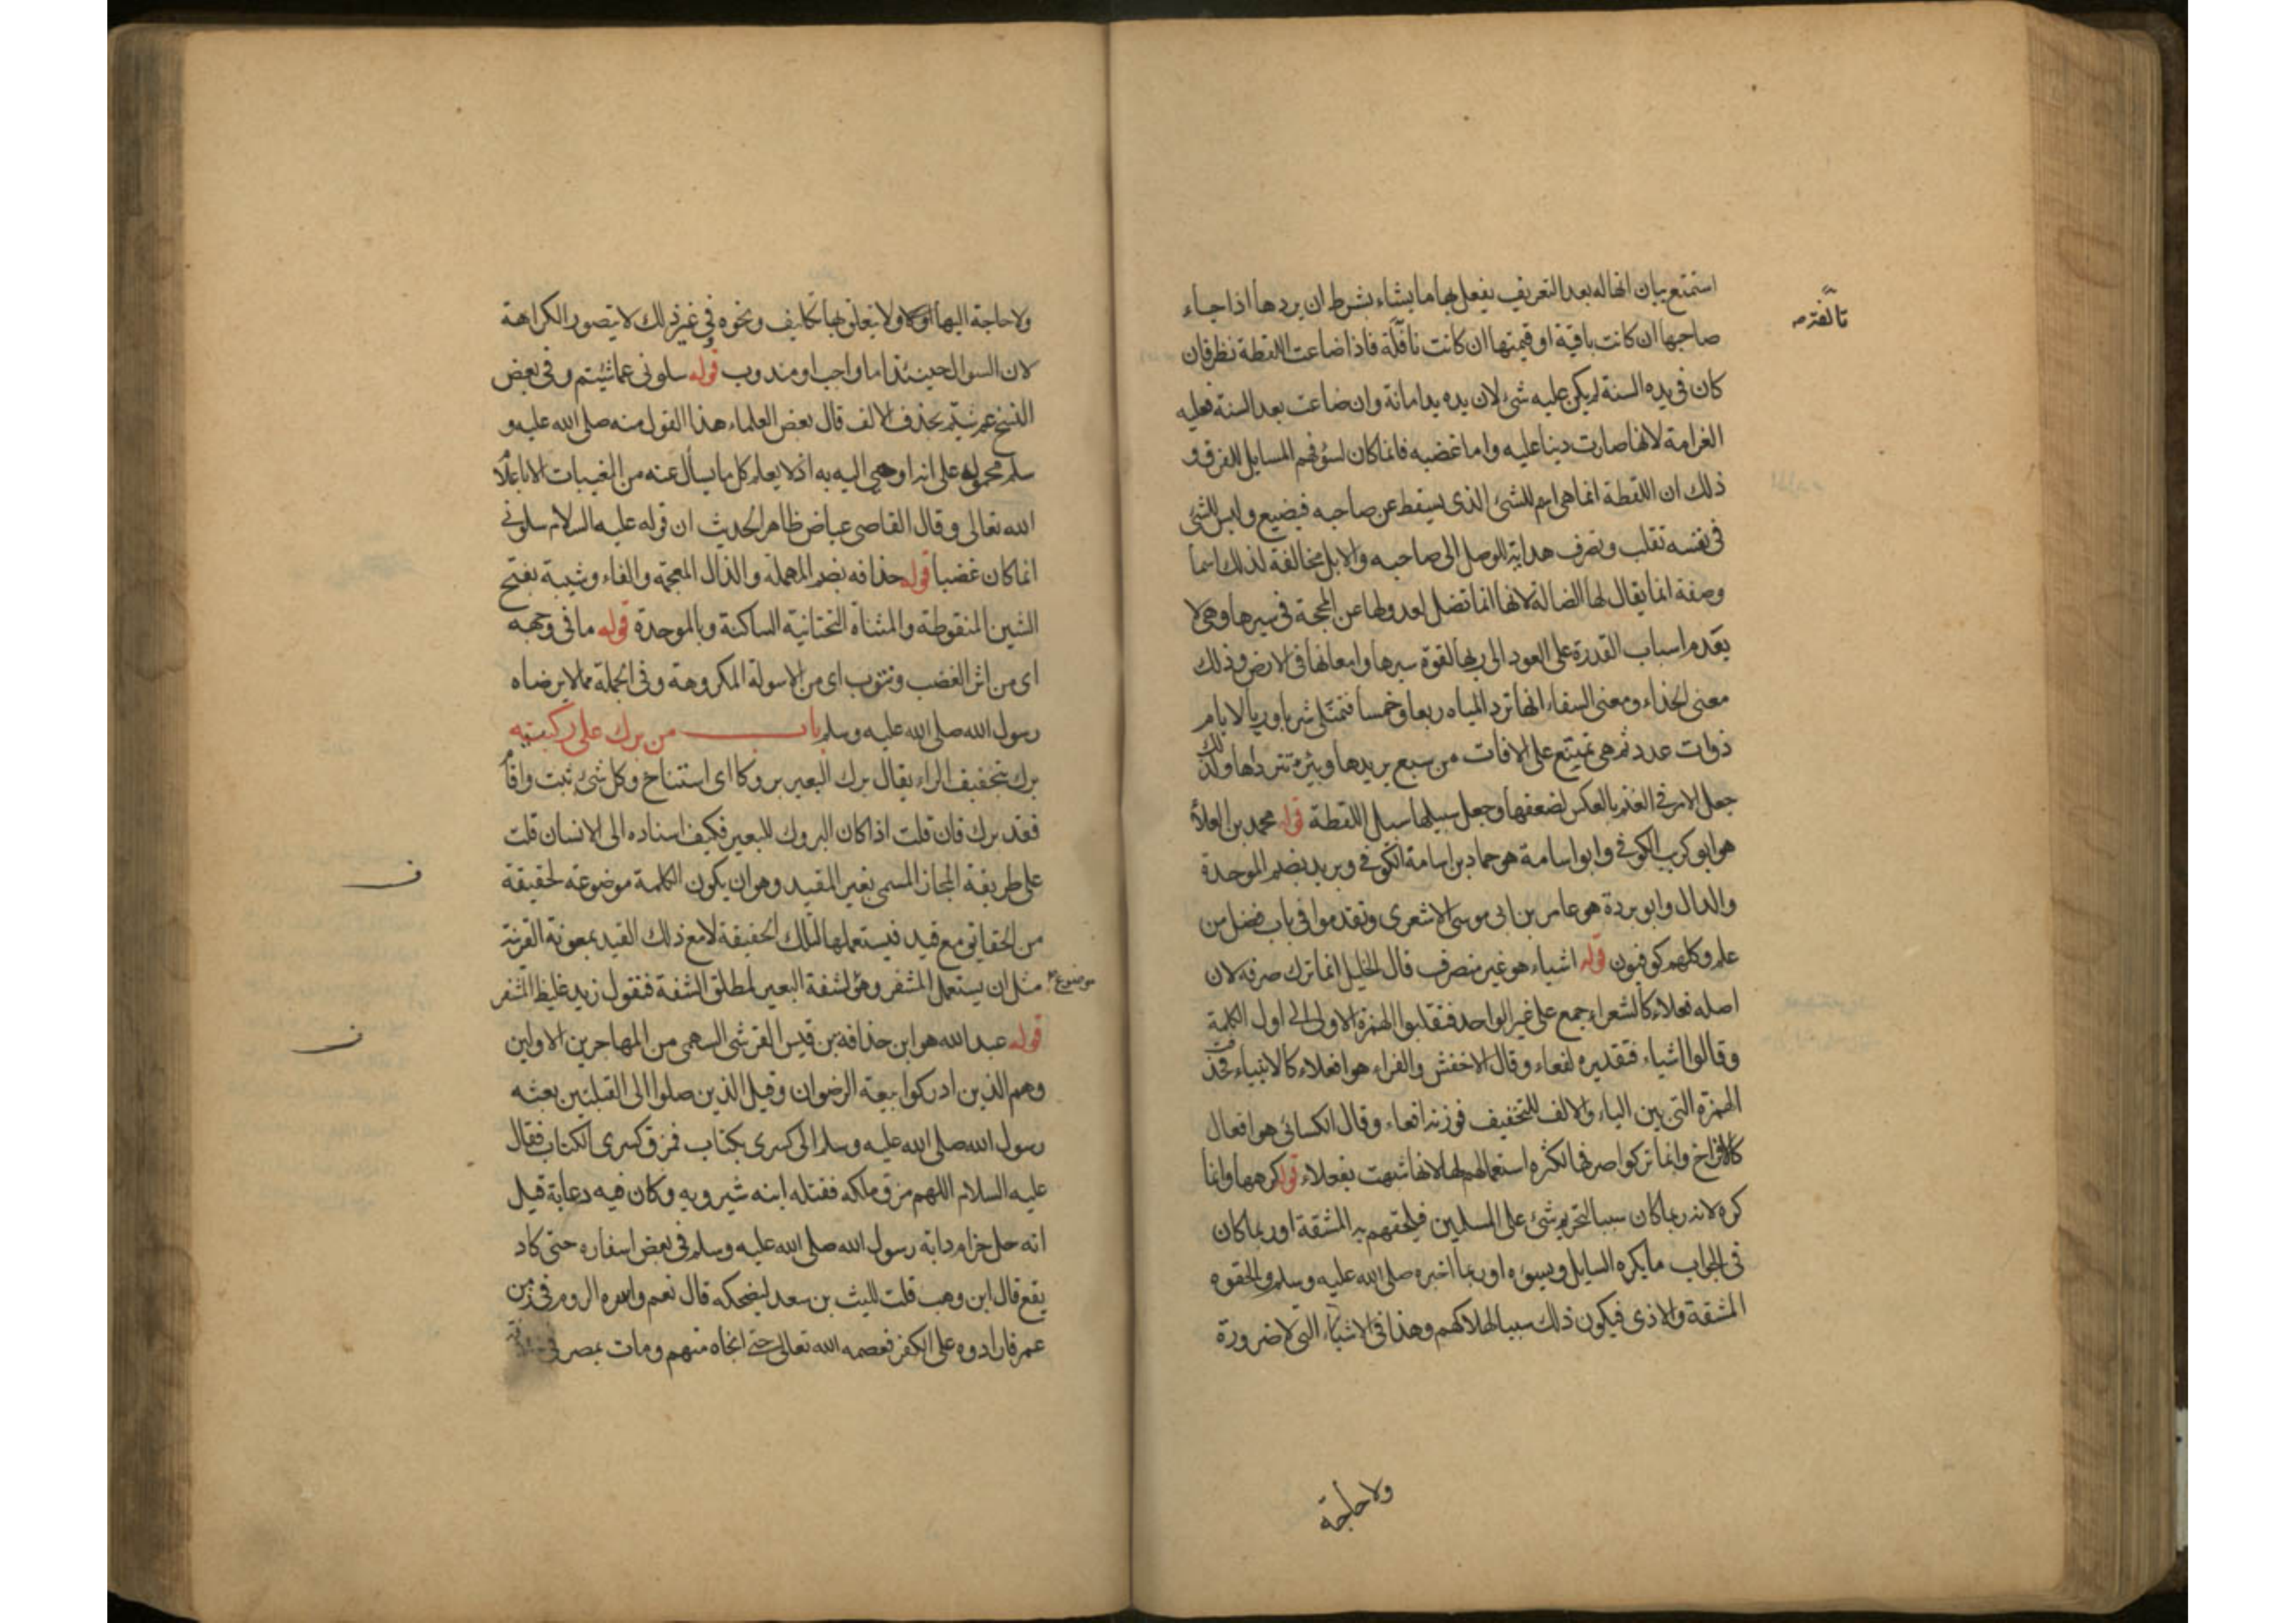 استمتع بيان انها له بعد التعريف يفعل بها ما يشاء بشرط ان يردها اذا جاء
صاحبها ان كانت باقية او قيمتها ان كانت تالفة فاذا ضاعت اللقطة نظر فان
كان فى يده السنة لم يكن عليه شئ لان يده يد امانة وان ضاعت بعد السنة فعليه
الغرامة لانها صارت دينا عليه واما غضبه فانما كان لسؤ فهم السايل للفرق و
ذلك ان اللقطة انما هى اسم للشئ الذى يسقط عن صاحبه فيضيع وليس للشئ
فى نفسه تقلب وتصرف هداية للوصل الى صاحبه والابل مخالفة لذلك اسما
وصفة انما يقال لها الضالة لانها انما تضل لعدولها عن المحجة فى سيرها وهى لا
يعدم اسباب القدرة على العود الى ربها لقوة سيرها وامعانها فى الارض وذلك
معنى الحذاء ومعنى السقاء انها ترد المياه ربعا وخمسا فتمتلى شربا وريا لايام
ذوات عدد ثم هى تمتنع على الافات من سبع يريدها وبئر تتردا ها ولذلك
جعل الامر فى الغنم بالعكس لضعفها وجعل سبيلها سبيل اللقطة قوله محمد بن العلاء
هو ابو كريب الكوفى وابو اسامة هو حماد بن اسامة الكوفى وبريد بضم الموحدة
والدال وابو بردة هو عامر بن ابى موسى الاشعرى وتقدموا فى باب فضل من
علم وكلهم كوفيون قوله اشياء هو غير منصرف قال الخليل انما ترك صرفه لان
اصله فعلاء كالشعراء جمع على غير الواحد فنقلبوا الهمزة الاولى الى اول الكلمة
وقالوا اشياء فتقديره لفعاء وقال الاخفش والفراء هو افعلاء كالانبياء فحذفت
الهمزة التى بين الياء والالف للتخفيف فوزنه افعاء وقال الكسائى هو افعال
كالافراخ وانما تركوا صرفها لكثره استعمالهم لها لانها شبهت بفعلاء قوله كرهها وانما
كره لانه ربما كان سببا لتحريم شئ على المسلمين فيلحقهم به المشقة او ربما كان
فى الجواب ما يكره السايل ويسوه او ربما اخبره صلى الله عليه وسلم والحقوه
المشقة والاذى فيكون ذلك سببا لهلاكهم وهذا فى الاشياء التى لا ضرورة
ولا حاجة
ولا حاجة اليها ولا يتعلق بها تكليف ونحوه وفى غير ذلك لا يتصور الكراهة
لان السوال حينئذ اما واجب او مندوب قوله سلونى عما شيتم وفى بعض
النسخ عم شيتم بحذف الالف قال بعض العلماء هذا القول منه صلى الله عليه و
سلم محمول على انه اوحى اليه به اذ لا يعلم كل ما يسأل عنه من المغيبات الا باعلام
الله تعالى وقال القاضى عياض ظاهر الحديث ان قوله عليه السلام سلونى
انما كان غضبا قوله حذافه بضم المهملة والذال المعجمة والفاء وشيبة بفتح
الشين المنقوطة والمثناة التحتانية الساكنة وبالموحدة قوله ما فى وجهه
اى من اثر الغضب ونتوب اى من الاسولة المكروهة وفى الجملة مما لا يرضاه
رسول الله صلى الله عليه وسلم باب من برك على ركبتيه
برك بتخفيف الراء يقال برك البعير بروكا اى استناخ وكل شئ ثبت واقام
فقد برك فان قلت اذا كان البروك للبعير فكيف اسناده الى الانسان قلت
على طريقة المجاز المسمى بغير المقيد وهو ان يكون الكلمة موضوعة لحقيقة
من الحقايق مع قيد فيستعملها لتلك الحقيقة لا مع ذلك القيد بمعونة القرينة
مثل ان يستعمل المشفر وهو موضوع لشفة البعير لمطلق الشفة فنقول زيد غليظ المشفر
قوله عبد الله هو ابن حذافة بن قيس القرشى السهمى من المهاجرين الاولين
وهم الذين ادركوا بيعة الرضوان وقيل الذين صلوا الى القبلتين بعثه
رسول الله صلى الله عليه وسلم الى كسرى بكتاب فمزق كسرى الكتاب فقال
عليه السلام اللهم مزق ملكه فقتله ابنه شيرويه وكان فيه دعابة قيل
انه حل حزام دابة رسول الله صلى الله عليه وسلم فى بعض اسفاره حتى كاد
يقع قال ابن وهب قلت لليث بن سعد ليضحكه قال نعم واسره الروم فى زمن
عمر فارادوه على الكفر فعصمه الله تعالى حتى انجاه منهم ومات بمصر فى